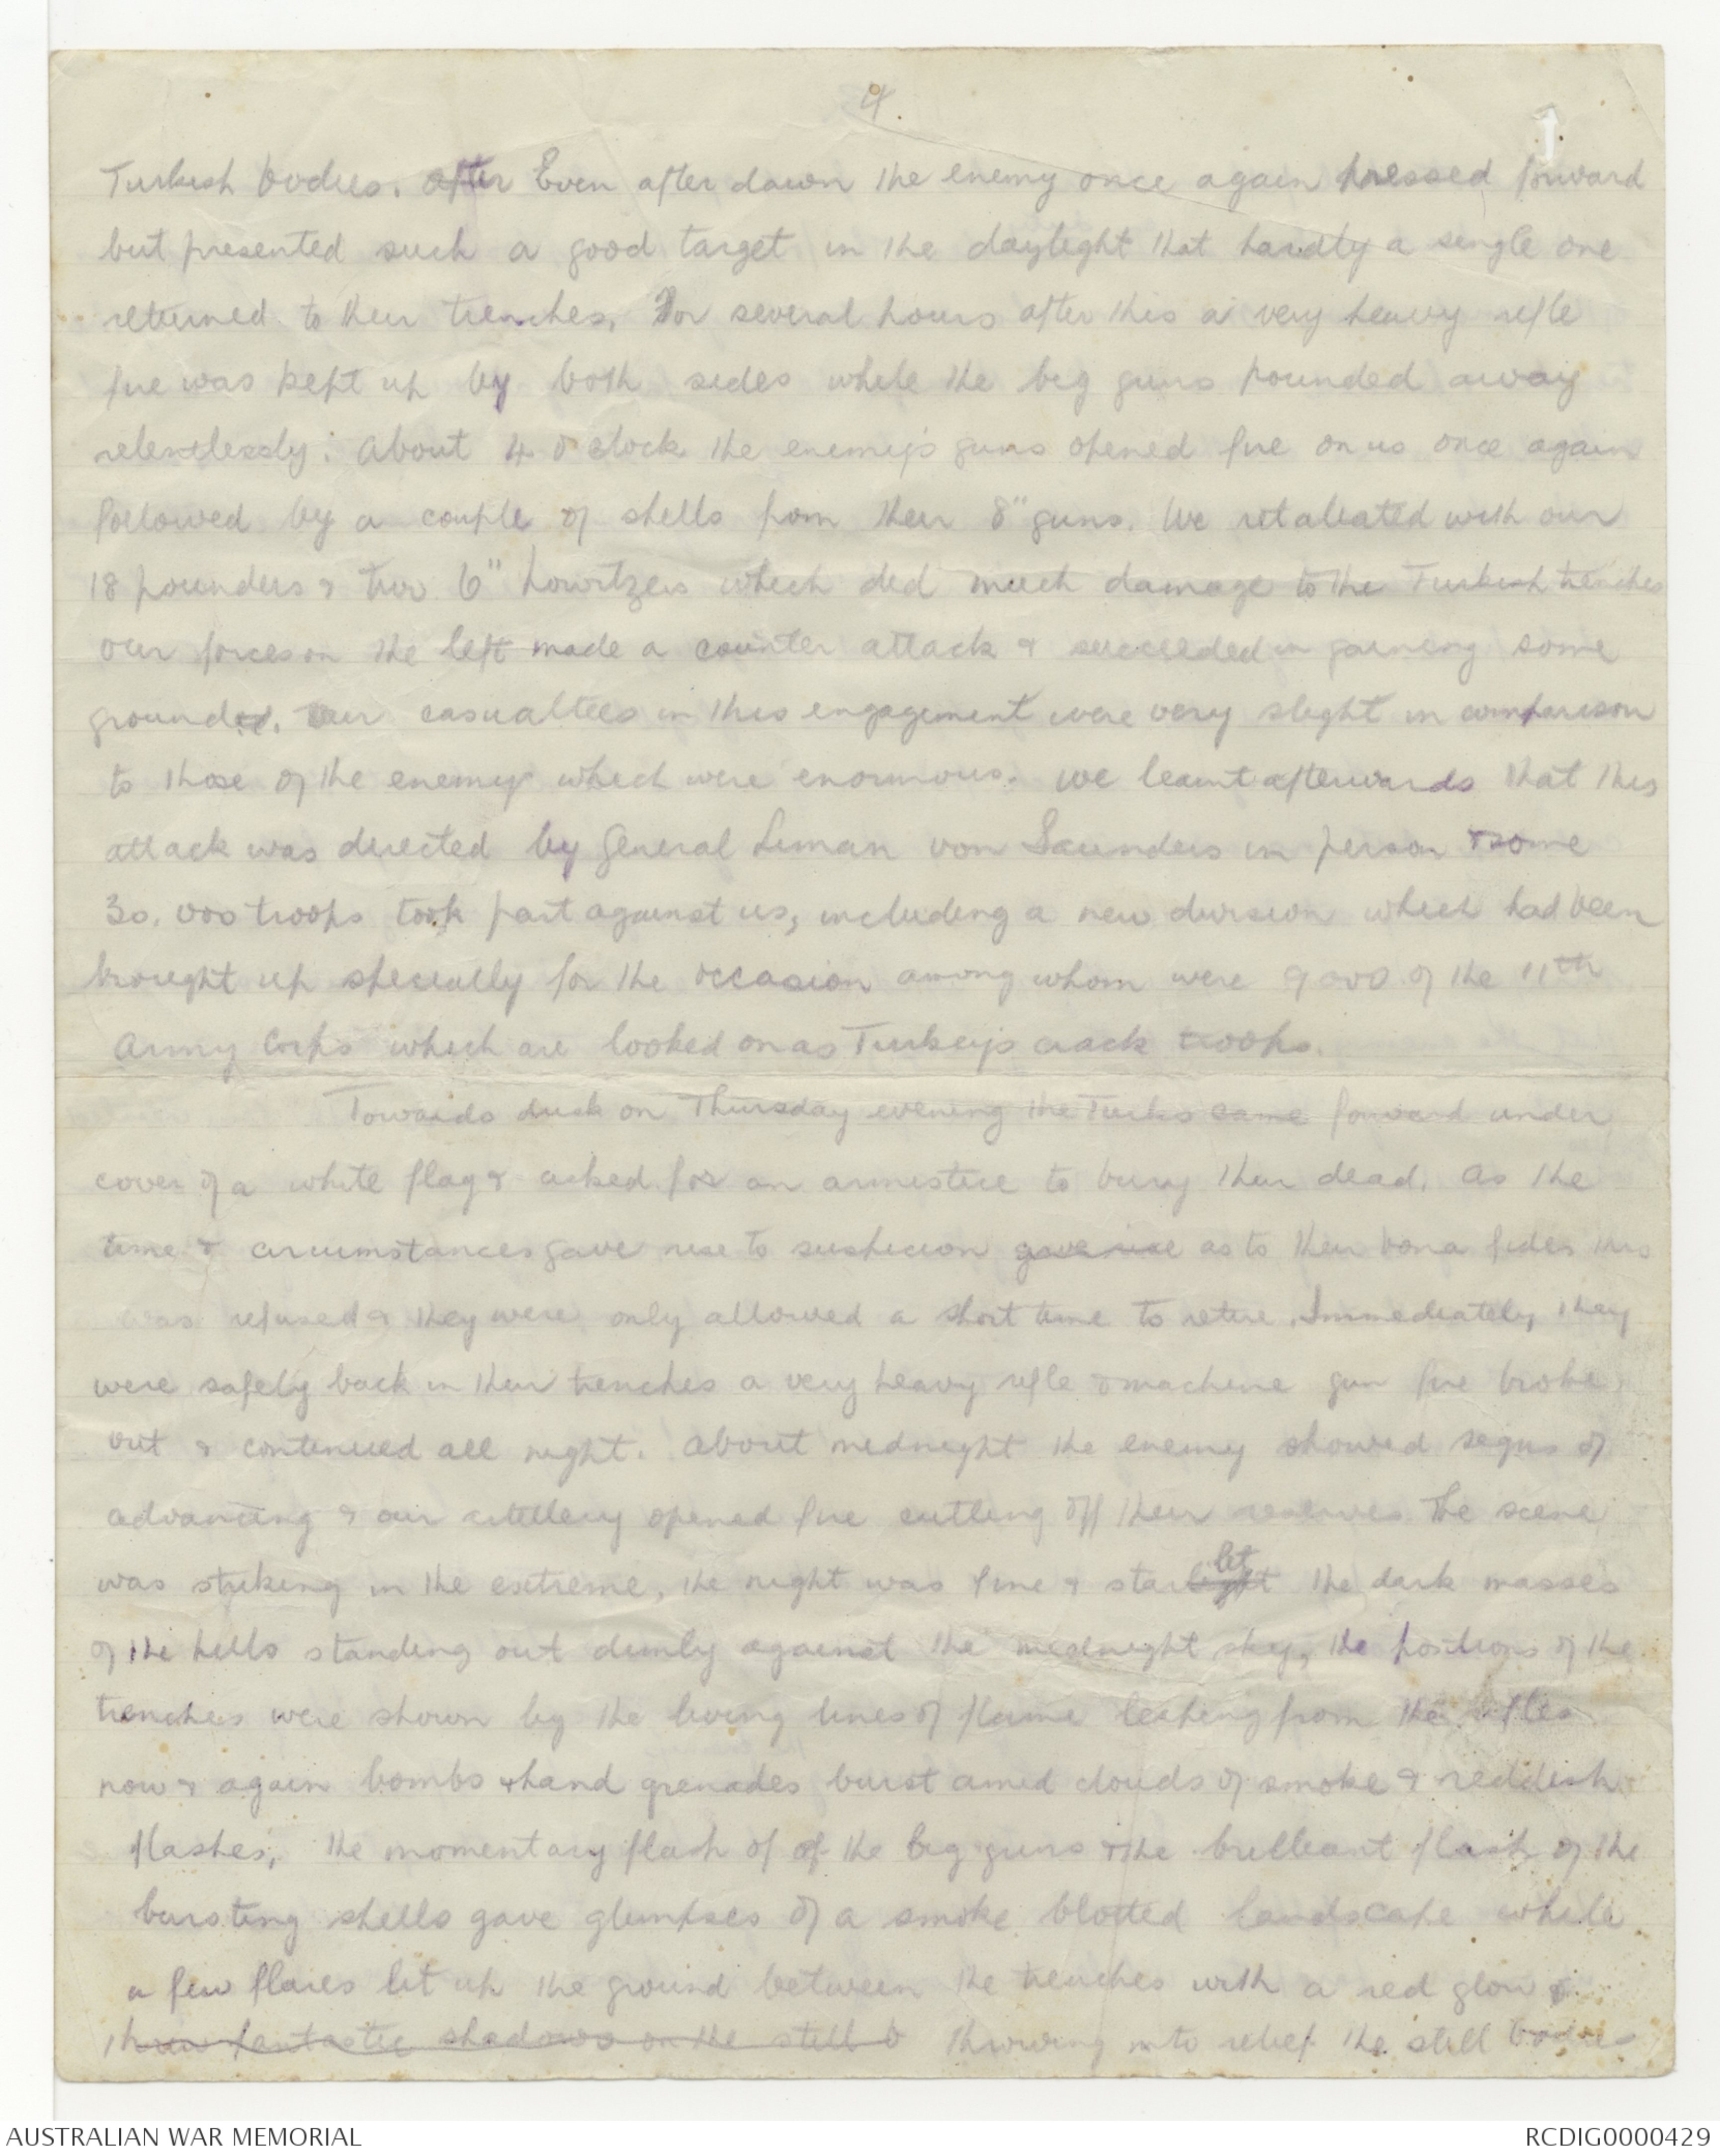 4.
1
Turkish bodies. After Even after dawn the enemy once again pressed forward
but presented such a good target in the daylight that hardly a single one
returned to their trenches. For several hours after this a very heavy rifle
fire was kept up by both sides while the big guns pounded away
relentlessly. About 4 o'clock the enemy's guns opened fire on us once again
followed by a couple of shells from their 8" guns. We retaliated with our
18 pounders & two 6" howitzers which did much damage to the Turkish trenches
our forces on the left made a counter attack & succeeded in gaining some
ground. Our casualties in this engagement were very slight in comparison
to those of the enemy which were enormous. We learnt afterwards that this
attack was directed by General Liman von Saunders in person & some
30,000 troops took part against us, including a new division which had been
brought up specially for the occasion among whom were 9000 of the 11th
Army Corps which are looked on as Turkey's crack troops.
Towards dusk on Thursday evening the Turks came forward under
cover of a white flag & asked for an armistice to bury their dead. As the
time & circumstances gave rise to suspicion gave rise as to their bona fides this
was refused & they were only allowed a short time to retire. Immediately they
were safely back in their trenches a very heavy rifle & machine gun fire broke
out & continued all night. About midnight the enemy showed signs of
advancing & our artillery opened fire cutting off their reserves. The scene
was striking in the extreme, the night was fine & starlight lit the dark masses
of the hills standing out dimly against the midnight sky, the positions of the
trenches were shown by the living lines of flame leaping from the rifles
now & again bombs & hand grenades burst amid clouds of smoke & reddish
flashes, the momentary flash of of the big guns & the brilliant flash of the
bursting shells gave glimpses of a smoke blotted landscape while
a few flares lit up the ground between the trenches with a red glow &
threw fantastic shadows on the still b throwing into relief the still bodies
AUSTRALIAN WAR MEMORIAL
RCDIG0000429